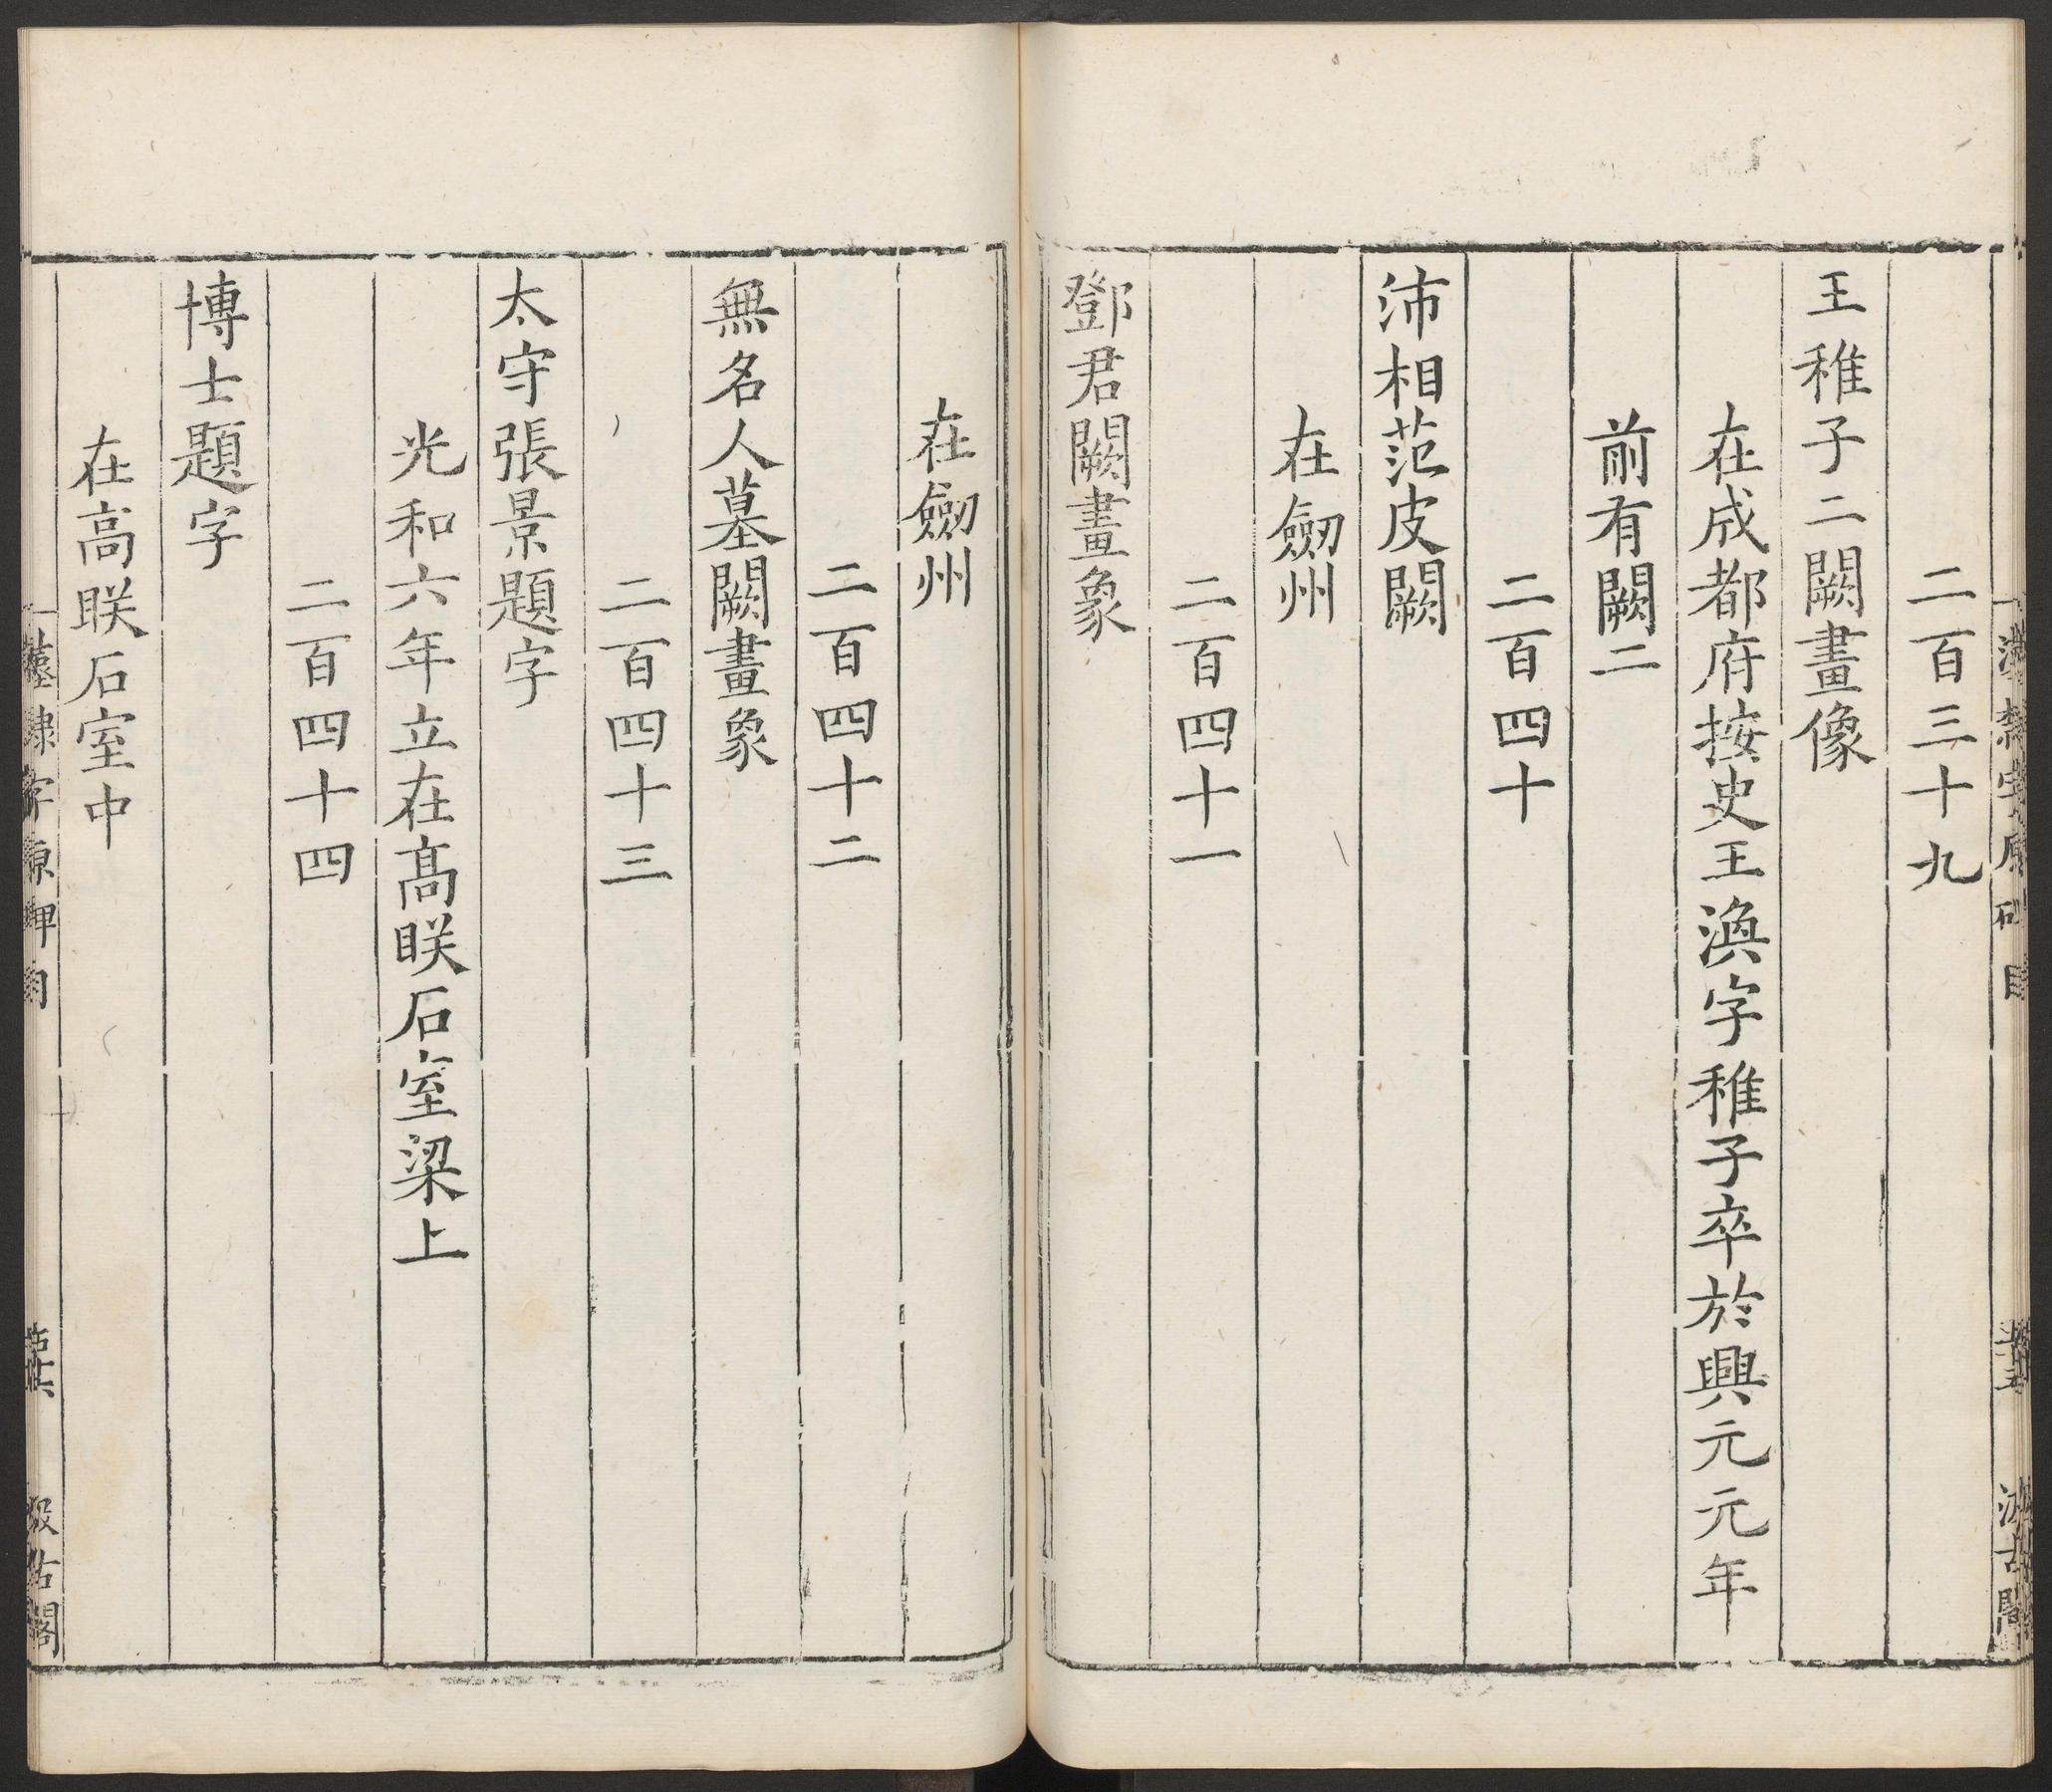 二百三十九
王稚子二闕畫像
在成都府按史王渙字稚子卒於興元元年
前有闕二
二百四十
沛相范皮闕
在劒州
二百四十一
鄧君闕畫象
在劒州
二百四十二
無名人墓闕畫象
二百四十三
太守張景題字
光和六年立在髙眹石室梁上
二百四十四
博士題字
在高眹石室中